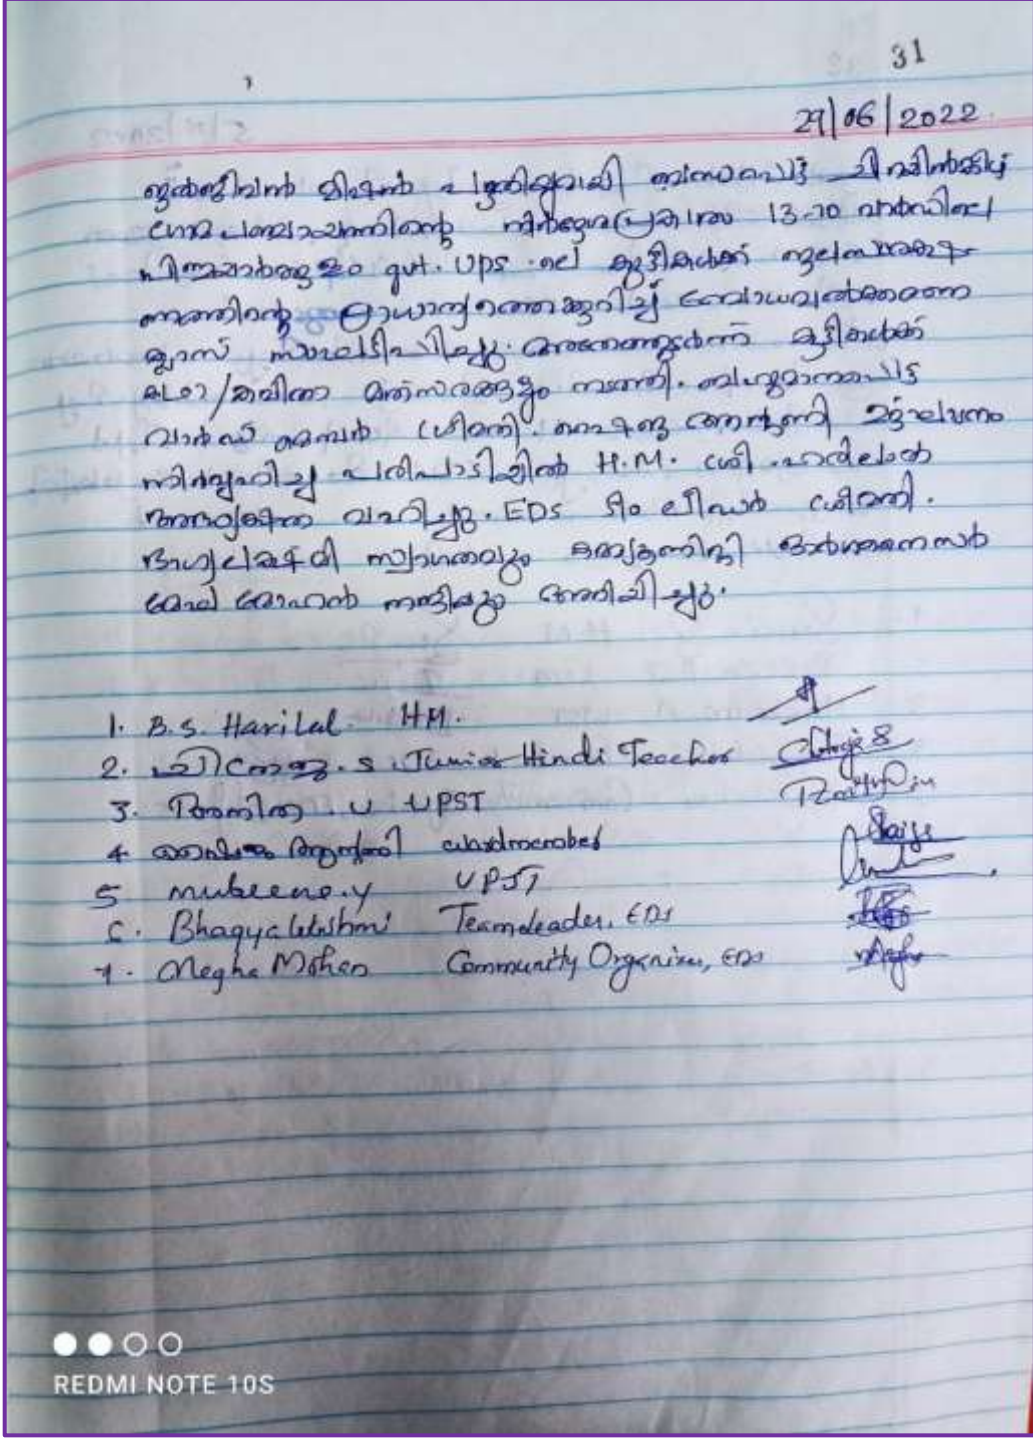 31
29/06/2022
ജൽജീവൻ മിഷൻ പദ്ധതിയുമായി ബന്ധപ്പെട്ട് ചിറയിൻകീഴ്
ഗ്രാമപഞ്ചായത്തിന്റെ നിർദ്ദേശപ്രകാരം 13-ാo വാർഡിലെ
gvt. UPS ലെ കുട്ടികൾക്ക് ജലസംരക്ഷ
ണത്തിന്റെ പ്രാധാന്യത്തെക്കുറിച്ച് ബോധവൽക്കരണ
ക്ലാസ് സംഘടിപ്പിച്ചു. അതേത്തുടർന്ന് കുട്ടികൾക്ക്
കഥാ/കവിതാ മത്സരങ്ങളും നടത്തി. ബഹുമാനപ്പെട്ട
വാർഡ് മെമ്പർ ശ്രീമതി. ആന്റണി ഉദ്ഘാടനം
നിർവ്വഹിച്ച പരിപാടിയിൽ H.M. ശ്രീ. ഹരിലാൽ
അദ്ധ്യക്ഷത വഹിച്ചു. EDS ടീം ലീഡർ ശ്രീമതി.
ഭാഗ്യലക്ഷ്മി സ്വാഗതവും കമ്മ്യൂണിറ്റി ഓർഗനൈസർ
മേഘ മോഹൻ നന്ദിയും അറിയിച്ചു.
1. B.S. Harilal. HM.
2. S Junior Hindi Teacher
3. അനിത. U UPST
4. ആന്റണി wardmember
5 mubeena.y UPST
6. Bhagyalekshmi Teamleader, EDS
7. Megha Mohan Community Organiser, EDS
REDMI NOTE 10S